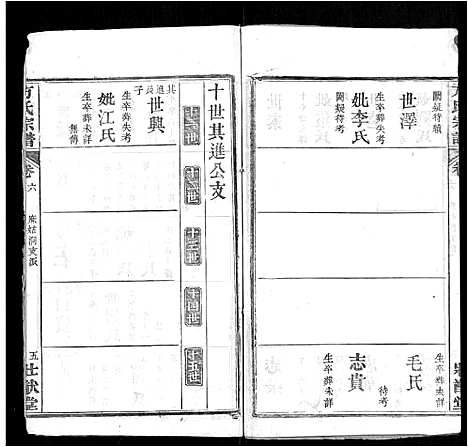 方氏宗譜
世澤
闕疑待續
妣李氏
生卒葬失考
闕疑待考
毛氏
生卒葬未詳
志貴
待考
生卒葬未詳
十世其進公支
十一世
十二世
十三世
十四世
十五世
其進長子
世興
生卒葬失考
妣江氏
生卒葬未詳
無傳
方氏宗譜
卷六
五
壯猷堂